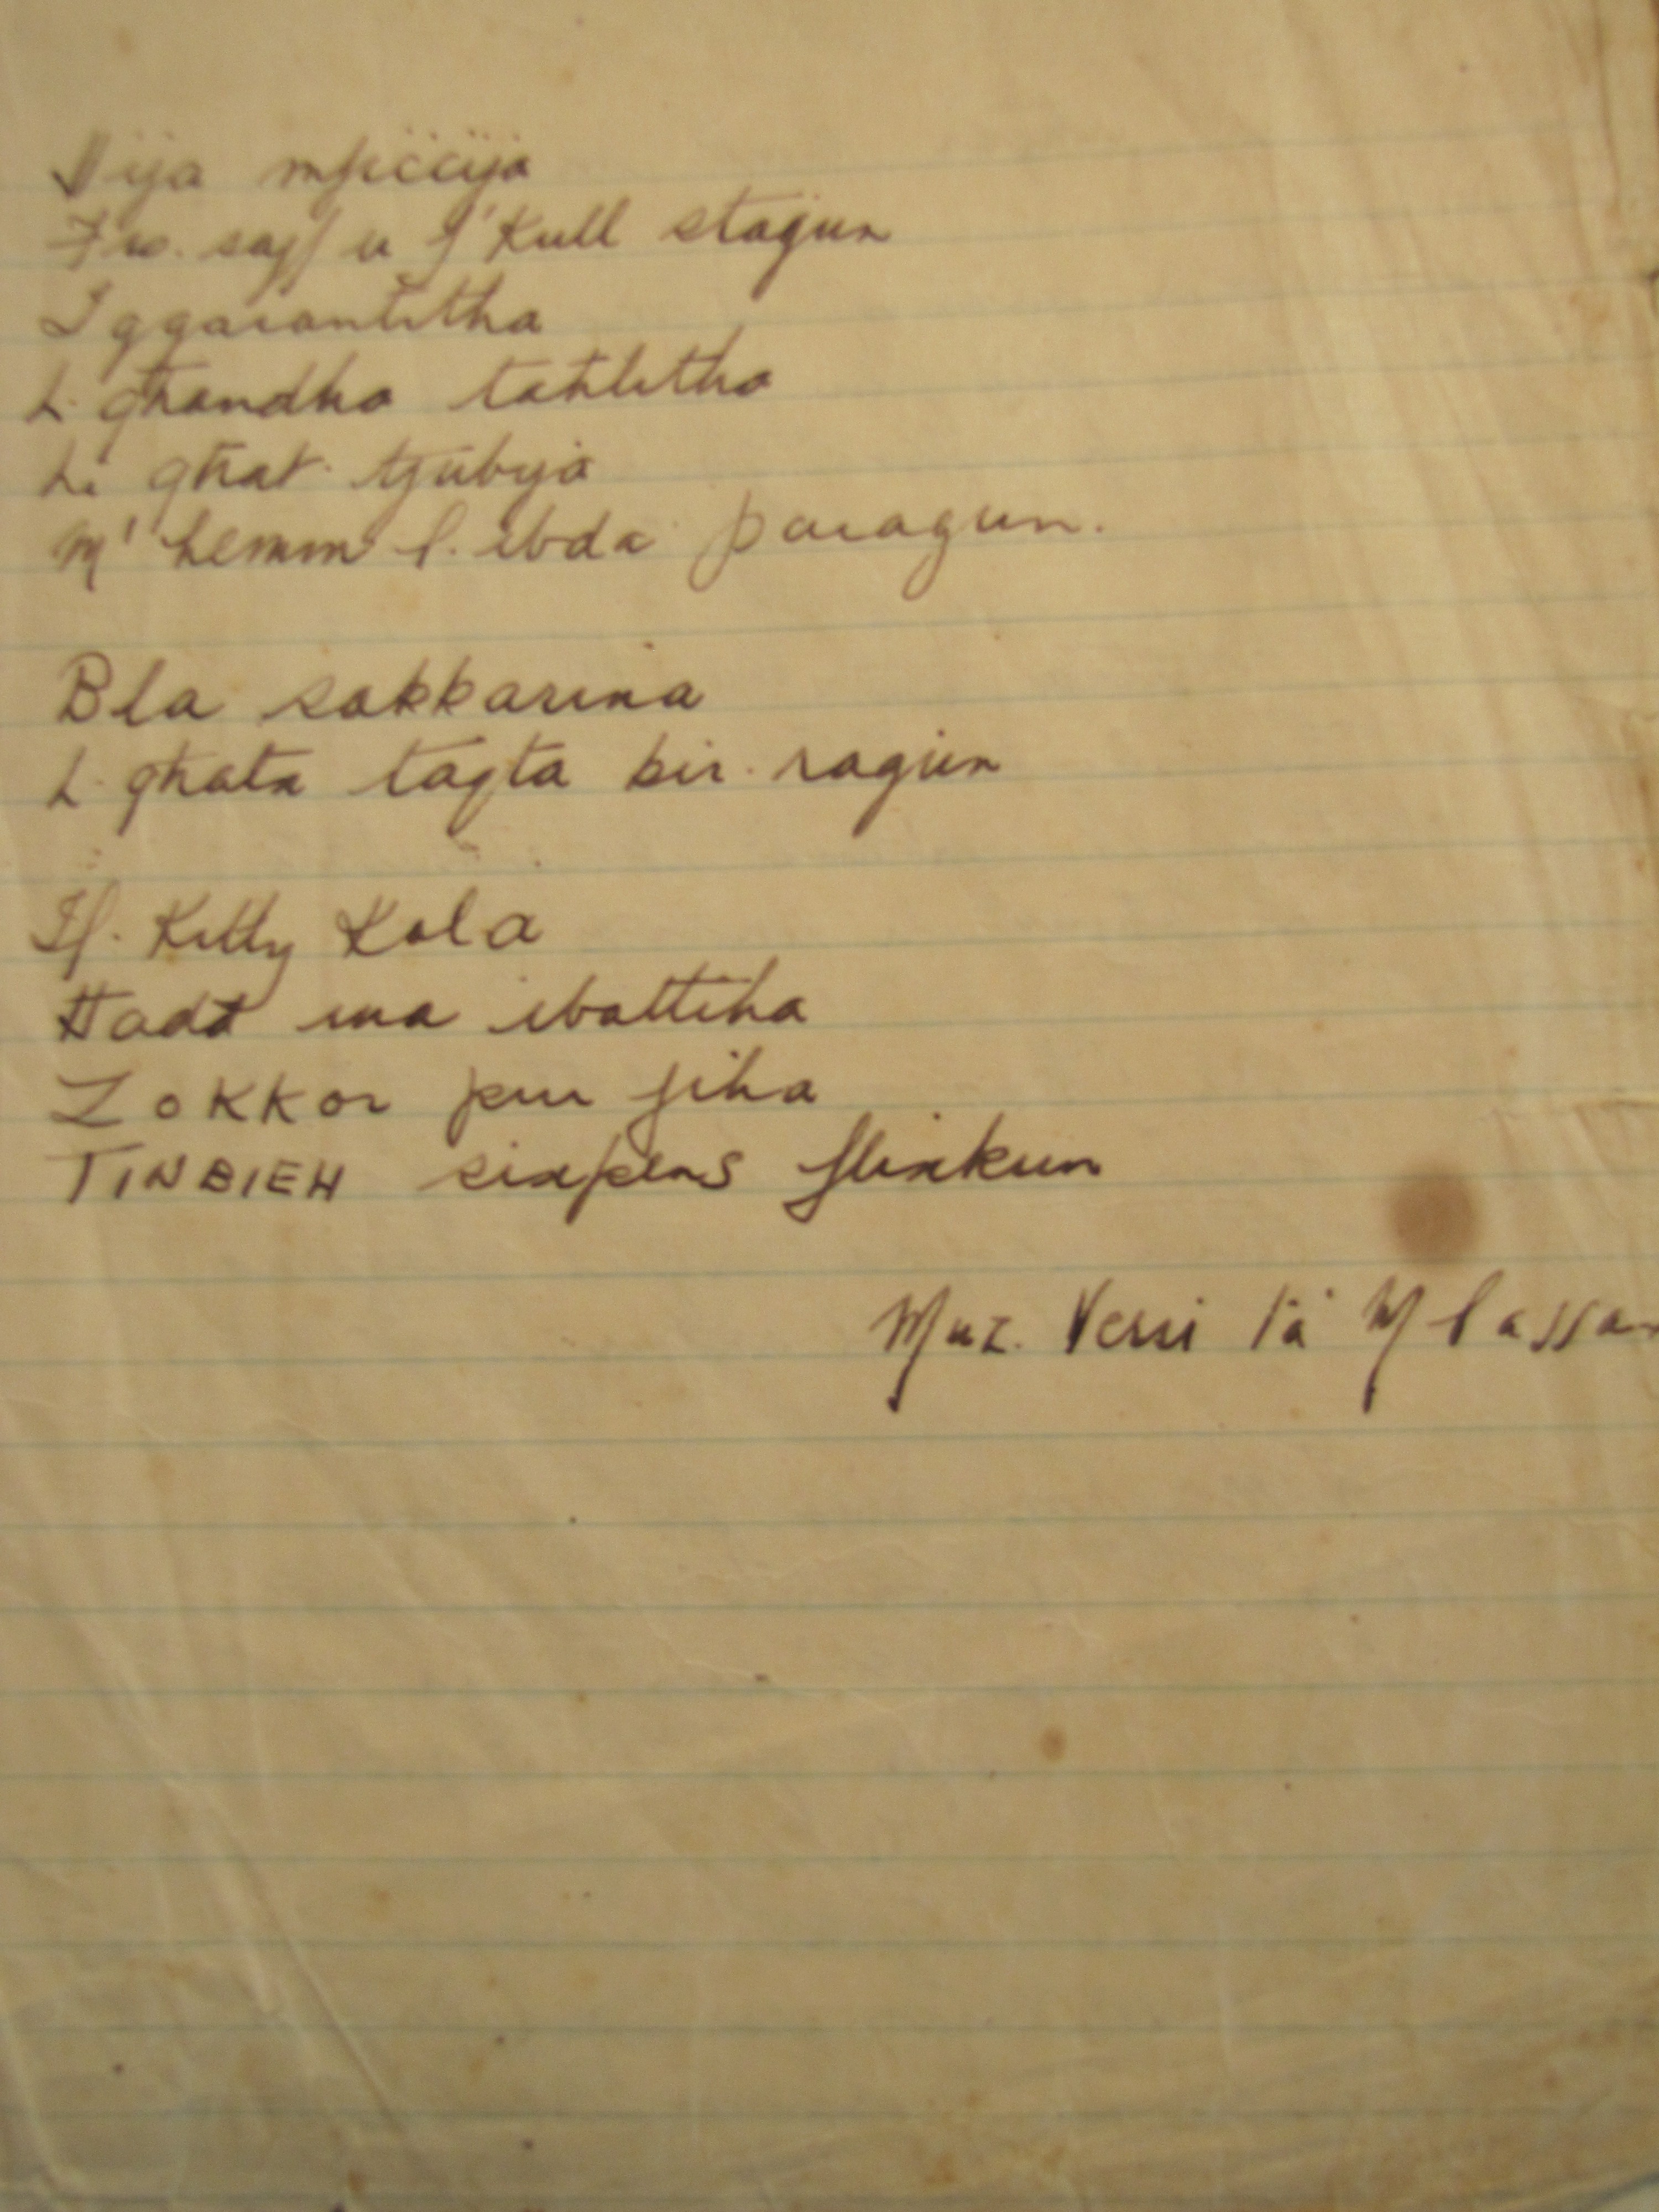 Nija mpiċċija
Fis. sajf u f' Kull staġun
Iggarantitha
L. għandha taħlitha
Li għat. tgħbija
M' hemm l. ebda paragun.
Bla sakkarina
L. għata tagħta bir. raġun
Il. Kitty Kola
Ħadd ma ibattiha
Zokkor pur fiha
TINBIEH sixpens flixkun
Muz. Versi ta M